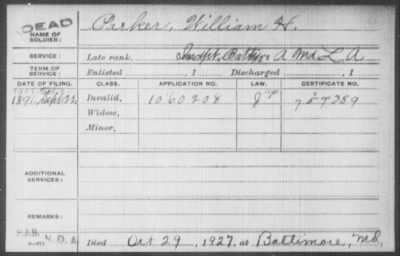 DEAD
NAME OF SOLDIER: Parker, William H.
SERVICE: Late rank, Indpt. Batty A Md L A
TERM OF SERVICE: Enlisted , 1 Discharged , 1
DATE OF FILING. CLASS. APPLICATION NO. LAW. CERTIFICATE NO.
1891 Sept 22 Invalid, 1060208 757389
Widow,
Minor,
ADDITIONAL SERVICES:
REMARKS:
N. D. A.
Died Oct 29, 1927, at Baltimore, Md.